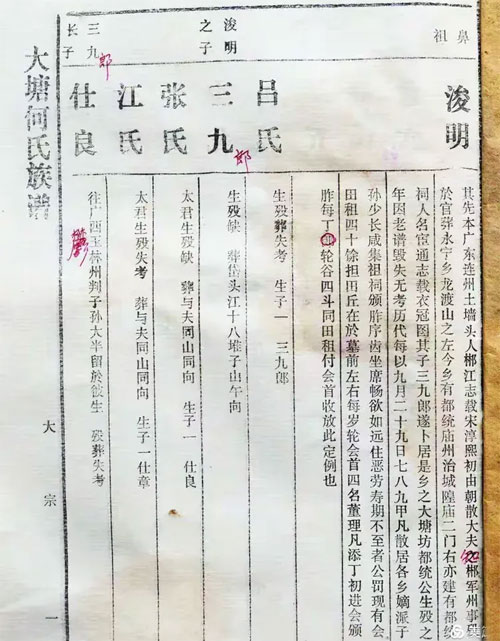 鼻祖
浚明
其先本广东连州土墙头人郴江志载宋淳熙初由朝散大夫知郴军州事
於官葬永宁乡龙渡山之左今乡有都统庙州治城隍庙二门右亦建有都统
祠人名宦通志载衣冠图其子三九郎遂卜居是乡之大塘坊都统公生殁之
年因老谱毁失无考历代每以九月二十九日七八九甲凡散居各乡嫡派子
孙少长咸集祖祠颁胙序齿坐席畅欲如远住恶劳寿期不至者公罚现有会
田租四十馀担田丘在於墓前左右每岁轮会首四名董理凡添丁初进会颁
胙每丁轮谷四斗同田租付会首收放此定例也
吕氏
生殁葬失考 生子一 三九郎
浚明之子
三九郎
生殁缺 葬岱头江十八堆子山午向
张氏
太君生殁缺 葬与夫同山同向 生子一 仕良
江氏
太君生殁失考 葬与夫同山同向 生子一仕章
三九郎长子
仕良
往广西玉林州判子孙大半留於彼生 殁葬失考
大塘何氏族谱
大宗
一